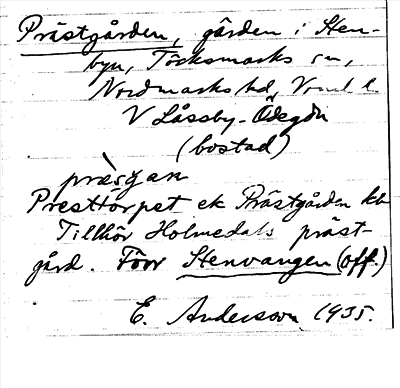 Prästgården, gården i Sten-
byn, Töcksmarks sn,
Nordmarks hd, Vrml l.
V Låssby-Ödegdn
(bostad)
präsgan
Presttorpet ek Prästgården kb
Tillhör Holmedals präst-
gård. Förr Stenvangen (off.)
E. Andersson 1935.